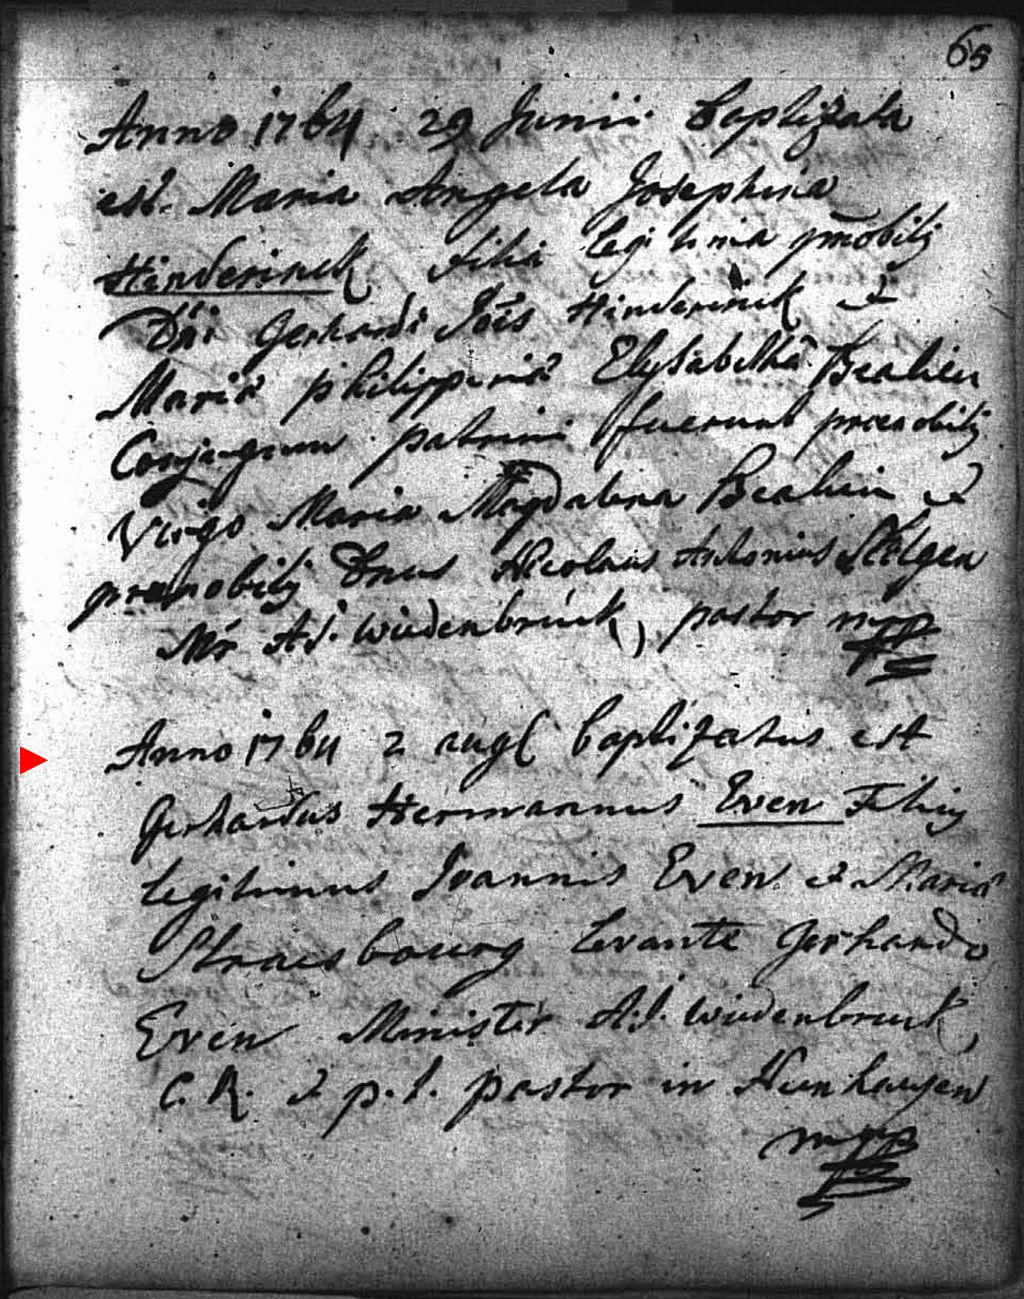 65
Anno 1764 29 Junii baptizata
est Maria Angela Josephina
Hinderinck filia legitima p̄nobilis
Dn̄i Gerhardi Jois Hinderinck &
Mariæ philippinæ Elysabethæ
Conjugum patrini fuerunt prænobilis
Virgo Maria Magdalena &
prænobilis Dnus Nicolaus Antonius
Mr A.J. Wiedenbrück, pastor mpp
Anno 1764 2 augl baptizatus est
Gerhardus Hermannus Even Filius
legitimus Joannis Even & Mariæ
Straesbourg levante Gerhardo
Even Minister A.J. Wiedenbruck
C.R. & p.t. pastor in
mpp